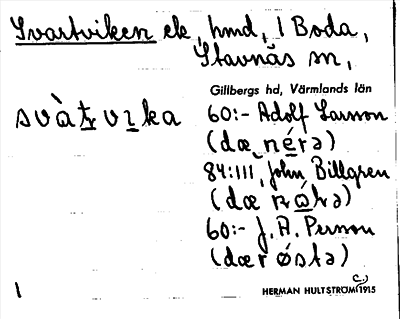 Svartviken ek, hmd, i Boda,
Stavnäs sn,
Gillbergs hd, Värmlands län
60:- Adolf Larsson
(dæ néra)
84:111, John Billgren
60:- J. A. Persson
(dær østa)
1
HERMAN HULTSTRÖM(c.)1915